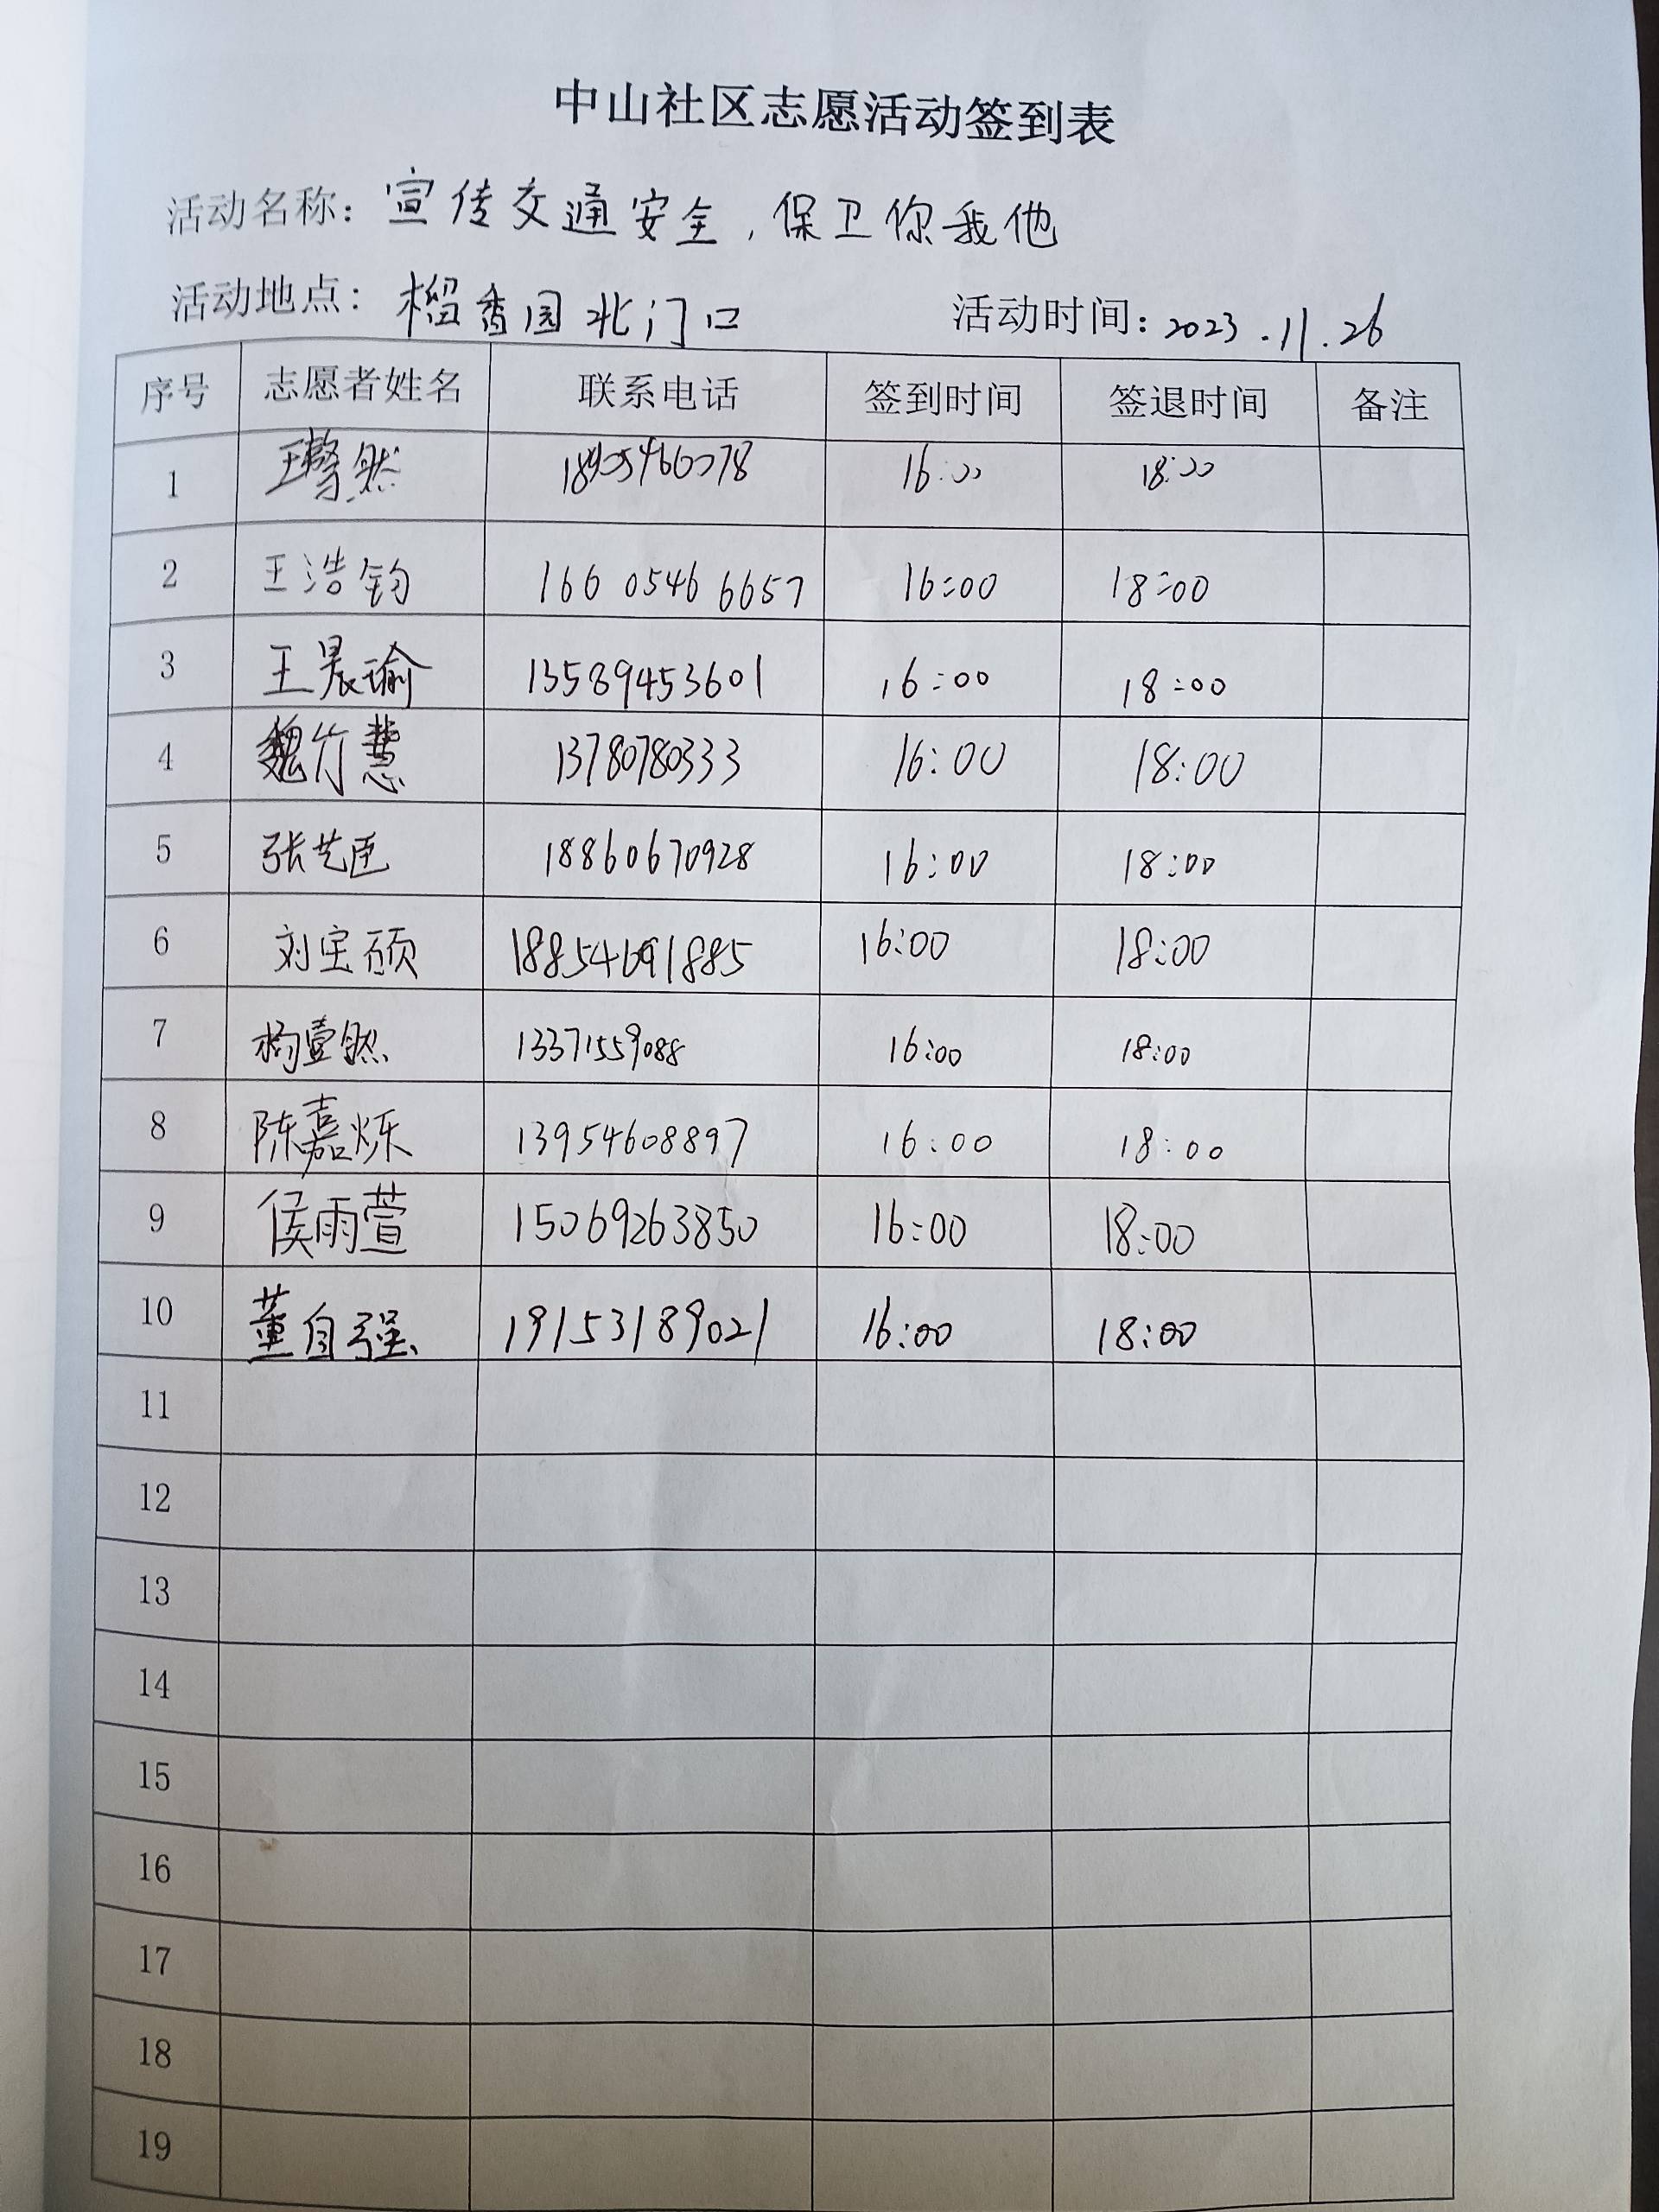 中山社区志愿活动签到表
活动名称：宣传交通安全，保卫你我他
活动地点：榴香园北门口 活动时间：2023.11.26
序号 志愿者姓名 联系电话 签到时间 签退时间 备注
1 然 16:00 18:00
2 王浩钧 166 0546 6657 16:00 18:00
3 王晨瑜 13589453601 16:00 18:00
4 魏竹慧 13780780333 16:00 18:00
5 张艺臣 18860670928 16:00 18:00
6 刘宝硕 18854691885 16:00 18:00
7 壹然 13371559088 16:00 18:00
8 陈嘉烁 13954608897 16:00 18:00
9 侯雨萱 15069263850 16:00 18:00
10 董自强 19153189021 16:00 18:00
11
12
13
14
15
16
17
18
19